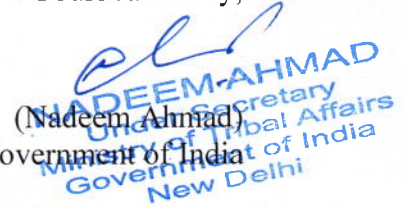 (Nadeem Ahmad)
Government of India
NADEEM-AHMAD
Under Secretary
Ministry of Tribal Affairs
Government of India
New Delhi